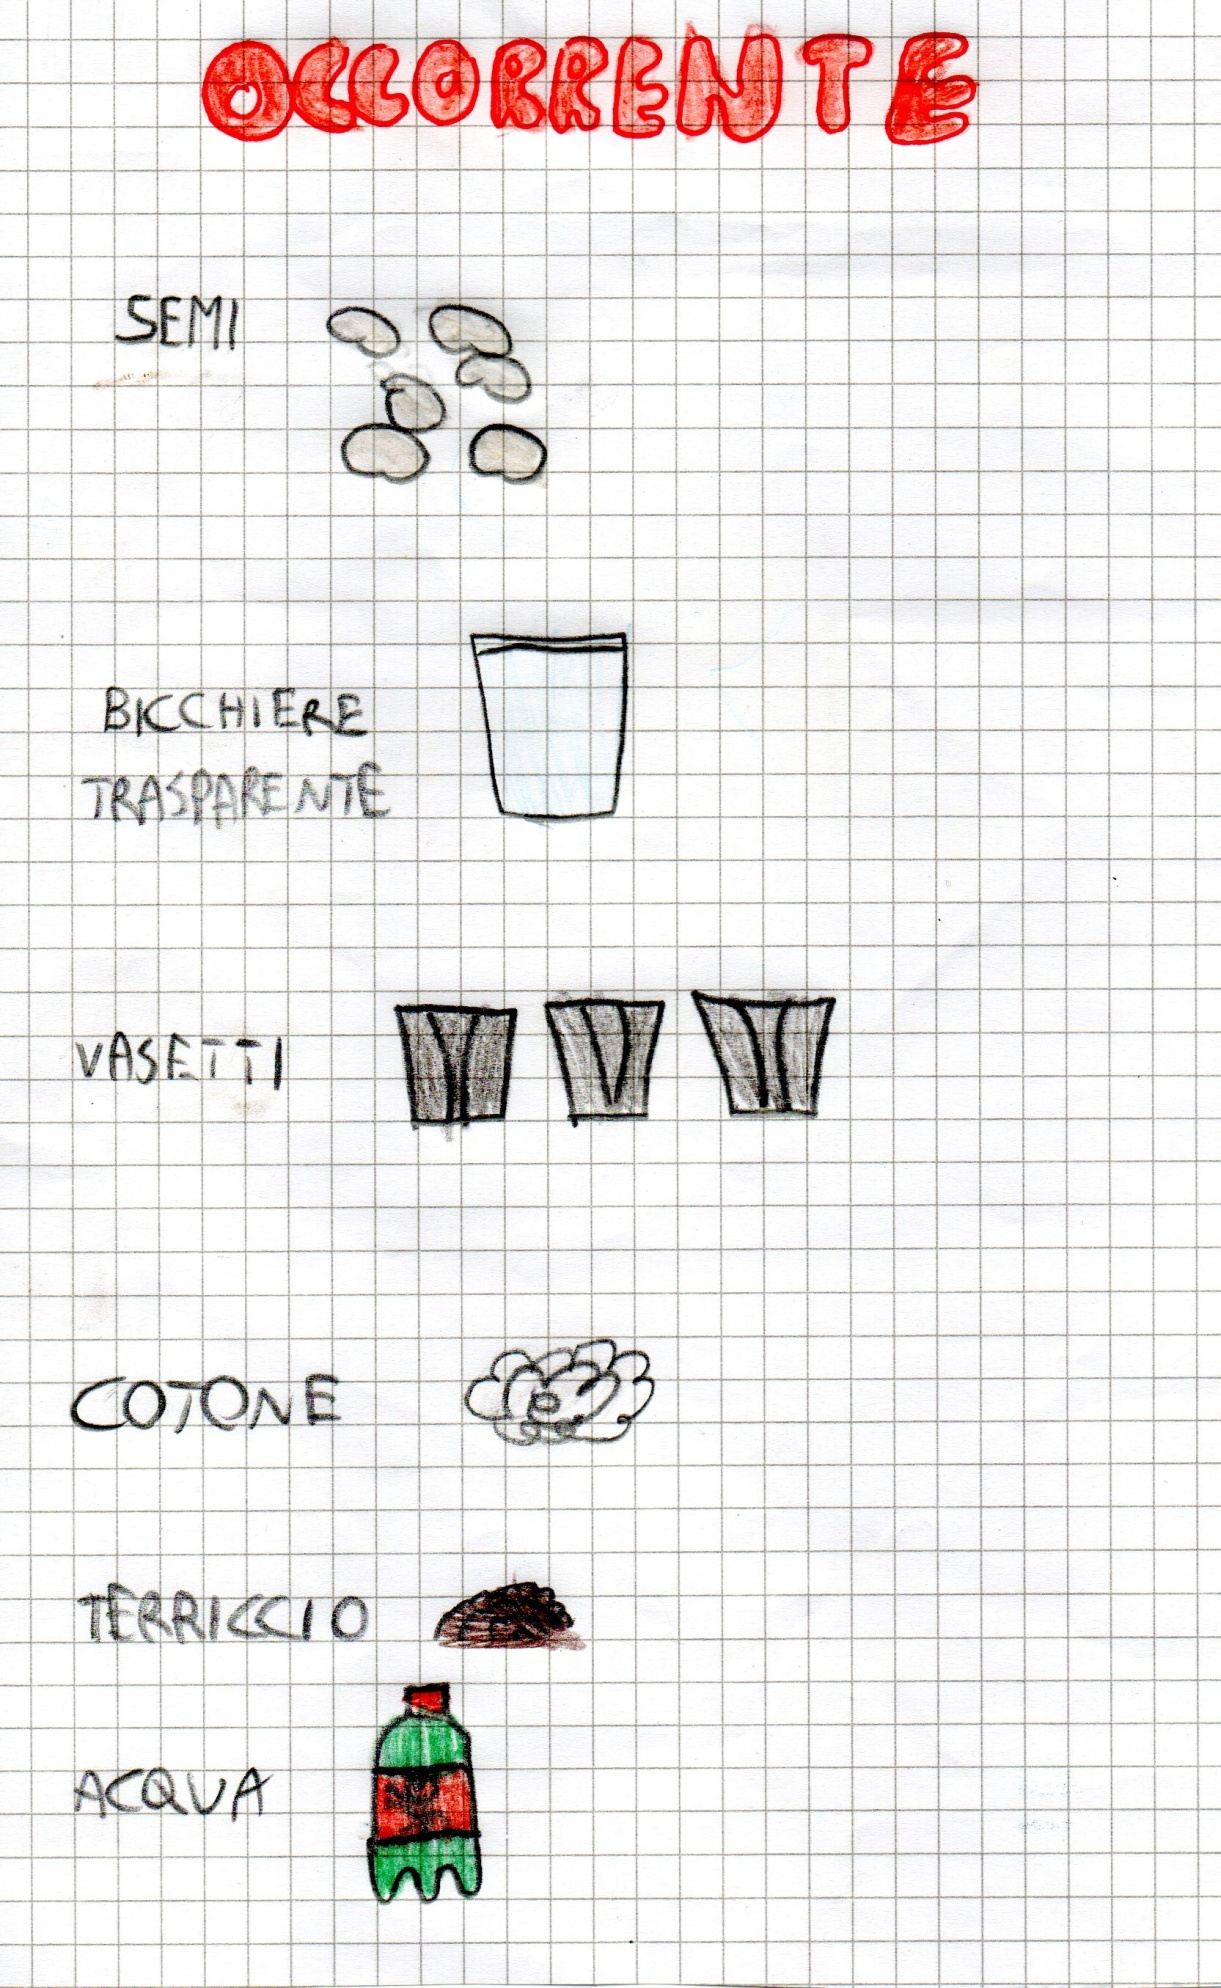 OCCORRENTE
SEMI
BICCHIERE
TRASPARENTE
VASETTI
COTONE
TERRICCIO
ACQUA